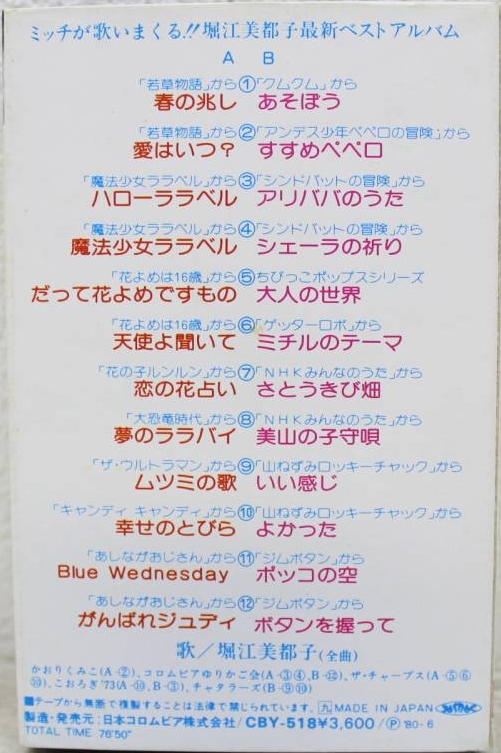 ミッチが歌いまくる!!堀江美都子最新ベストアルバム
A B
「若草物語」から①「クムクム」から
春の兆し あそぼう
「若草物語」から②「アンデス少年ペペロの冒険」から
愛はいつ? すすめペペロ
「魔法少女ララベル」から③「シンドバットの冒険」から
ハローララベル アリババのうた
「魔法少女ララベル」から④「シンドバットの冒険」から
魔法少女ララベル シェーラの祈り
「花よめは16歳」から⑤ちびっこポップスシリーズ
だって花よめですもの 大人の世界
「花よめは16歳」から⑥「ゲッターロボ」から
天使よ聞いて ミチルのテーマ
「花の子ルンルン」から⑦「NHKみんなのうた」から
恋の花占い さとうきび畑
「大恐竜時代」から⑧「NHKみんなのうた」から
夢のララバイ 美山の子守唄
「ザ・ウルトラマン」から⑨「山ねずみロッキーチャック」から
ムツミの歌 いい感じ
「キャンディ キャンディ」から⑩「山ねずみロッキーチャック」から
幸せのとびら よかった
「あしながおじさん」から⑪「ジムボタン」から
Blue Wednesday ポッコの空
「あしながおじさん」から⑫「ジムボタン」から
がんばれジュディ ボタンを握って
歌/堀江美都子(全曲)
かおりくみこ(A-②)、コロムビアゆりかご会(A-③④、B-⑫)、ザ・チャープス(A-⑤⑥
⑩)、こおろぎ'73(A-⑩、B-③)、チャタラーズ(B-⑨⑩)
■テープから無断で複製することは法律で禁じられています。 九 MADE IN JAPAN
製造・発売元:日本コロムビア株式会社/CBY-518¥3,600/Ⓟ'80-6
TOTAL TIME 76'50"